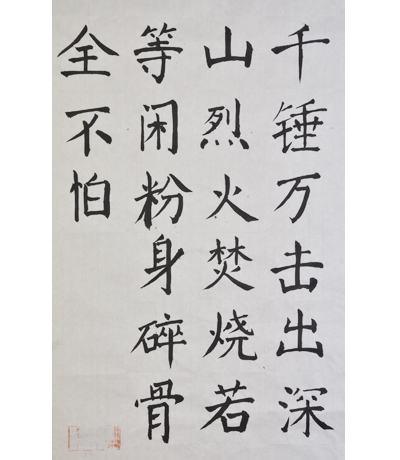 千锤万击出深
山烈火焚烧若
等闲粉身碎骨
全不怕